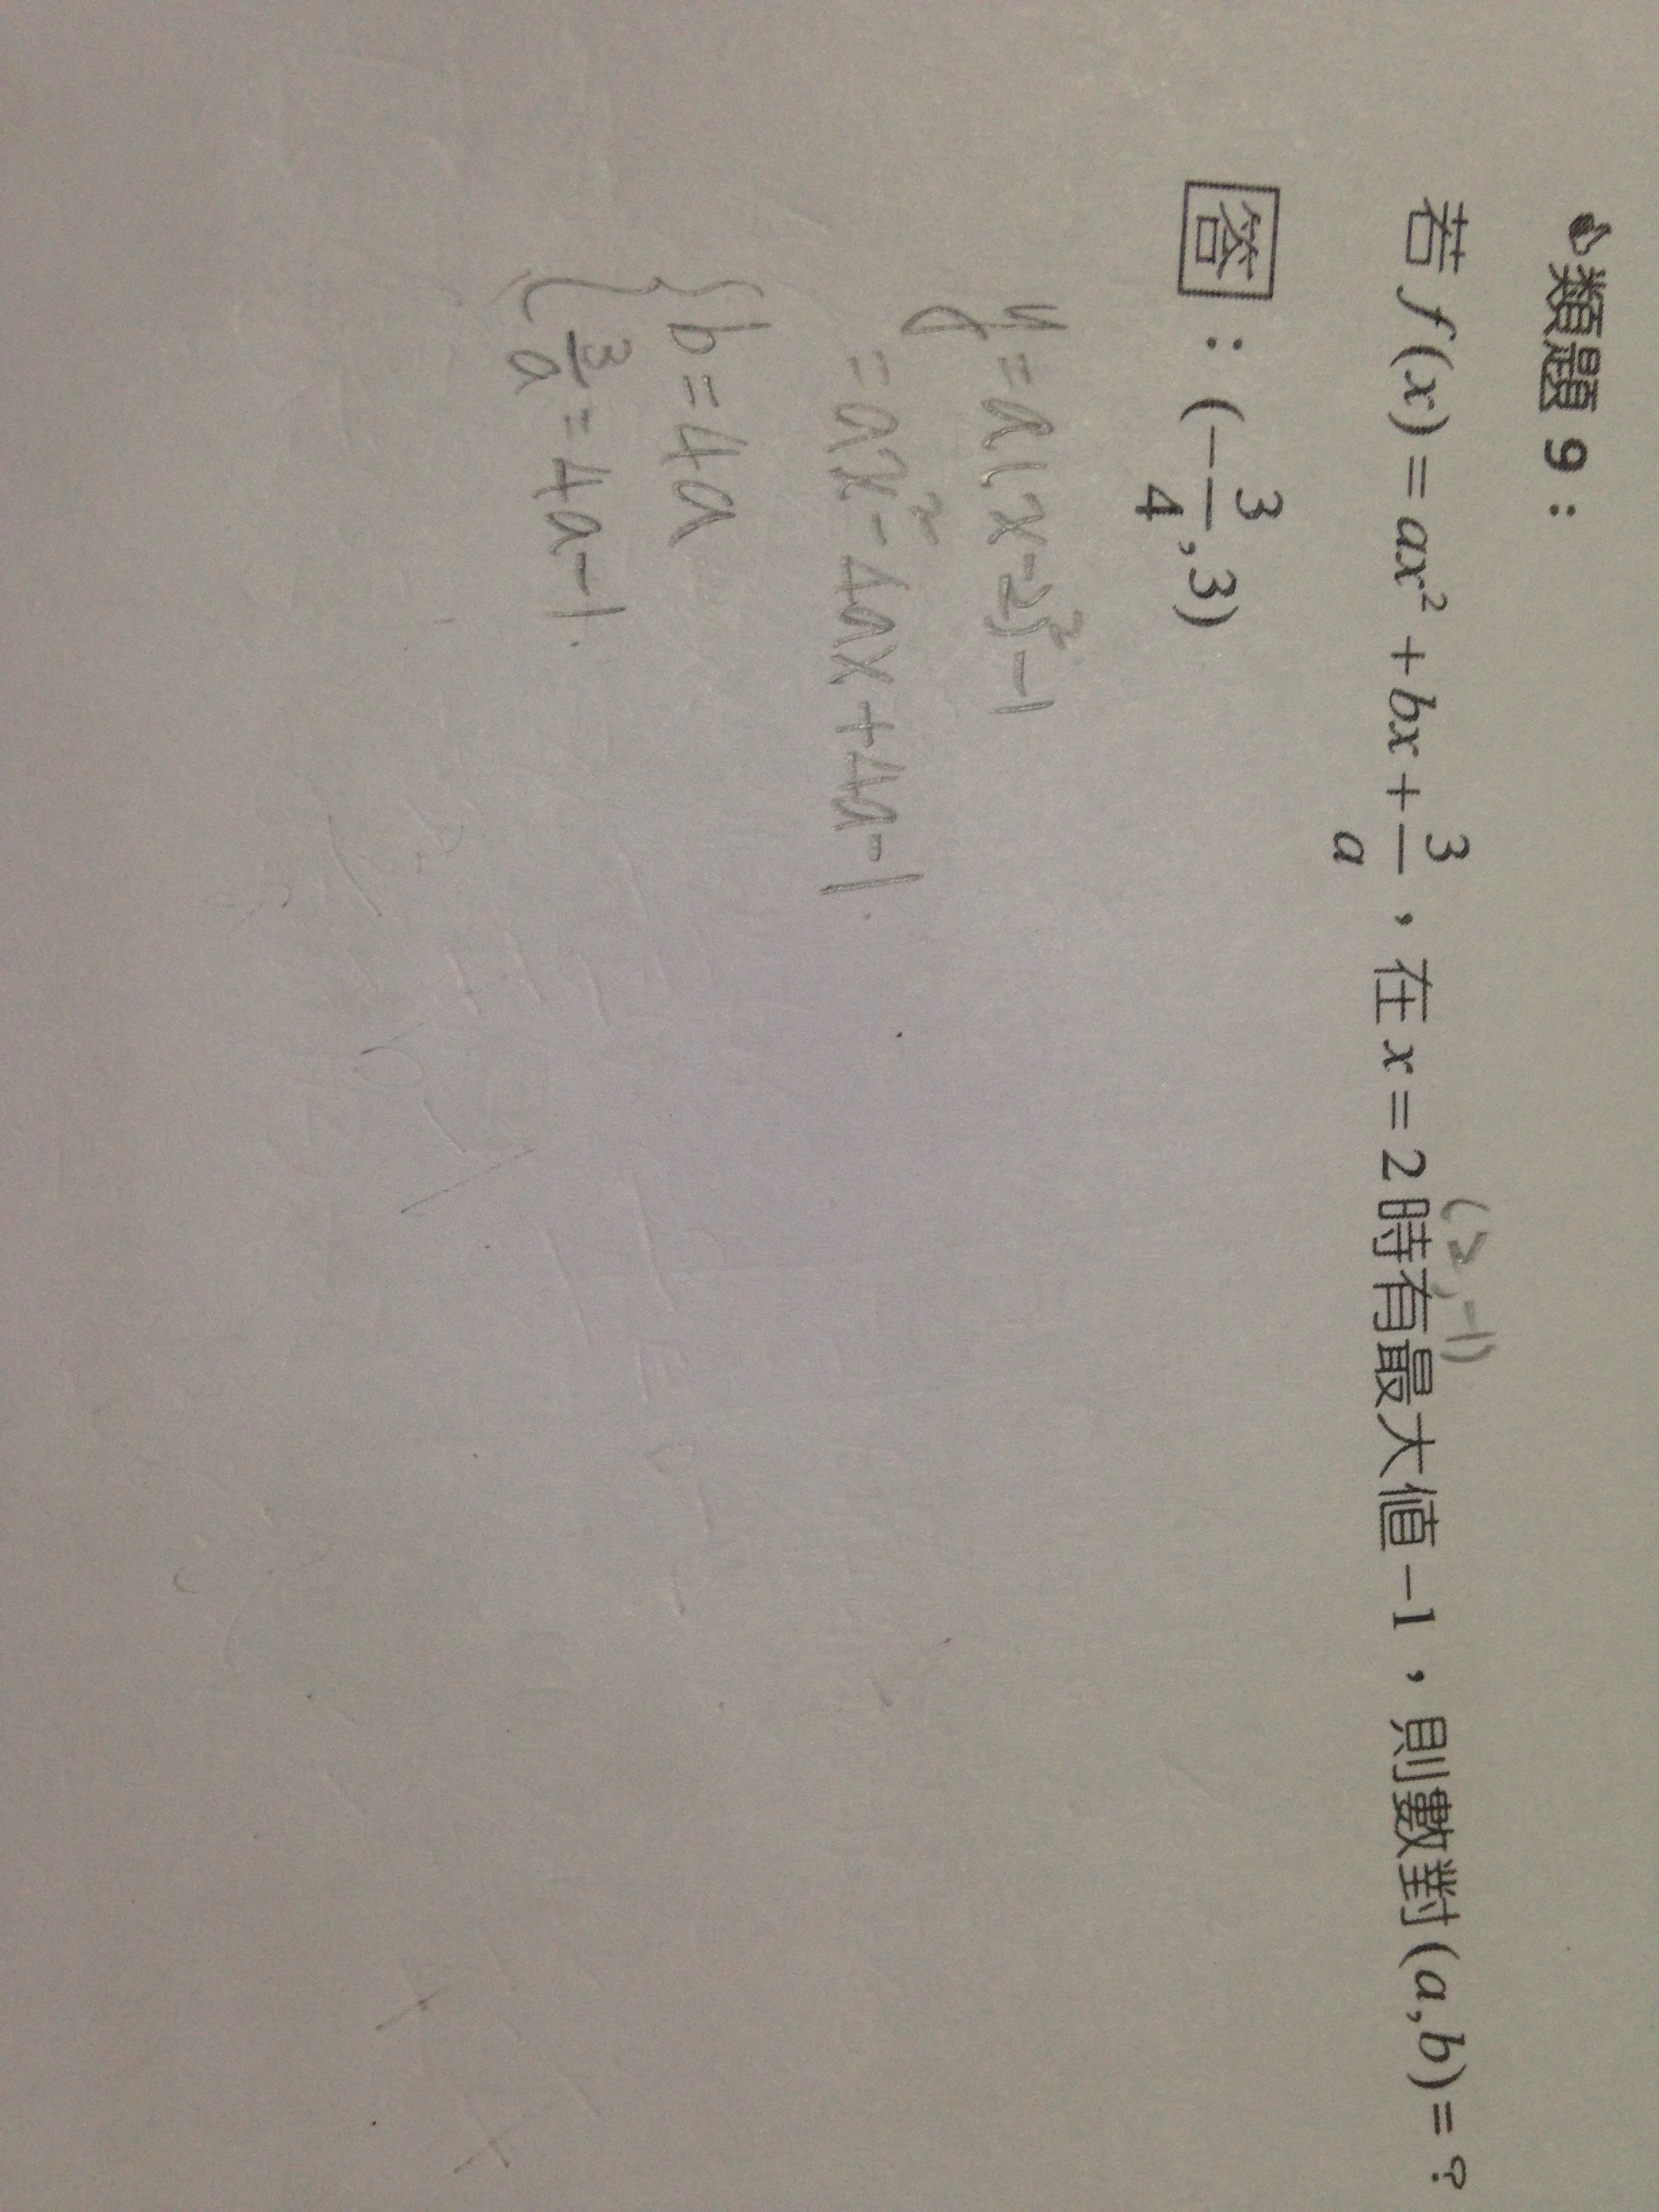 類題 9：
(2,-1)
若 f(x)=ax²+bx+3/a，在 x=2 時有最大值 -1，則數對 (a,b)=？
答：(-3/4,3)
y=a(x-2)²-1
=ax²-4ax+4a-1
{b=4a
{3/a=4a-1